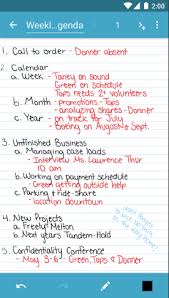 2:00
Weekl...genda
1
1. Call to order - Donner absent
2. Calendar
a. Week - Taney on sound
Green on schedule
Tops needs 2+ volunteers
b. Month - promotions - Tops
analyzing shares - Donner
c. Year - on track for July
boeing on August & Sept.
3. Unfinished Business
a. Managing case loads
- Interview Ms. Lawrence Thur
10 am
b. Working on payment schedule
- Green getting outside help
c. Parking & Ride-share
- location downtown
4. New Projects
a. Freeluf Melton
b. Next years Tandem-Hold
5. Confidentiality Conference
- May 3-6 - Green, Tops & Donner